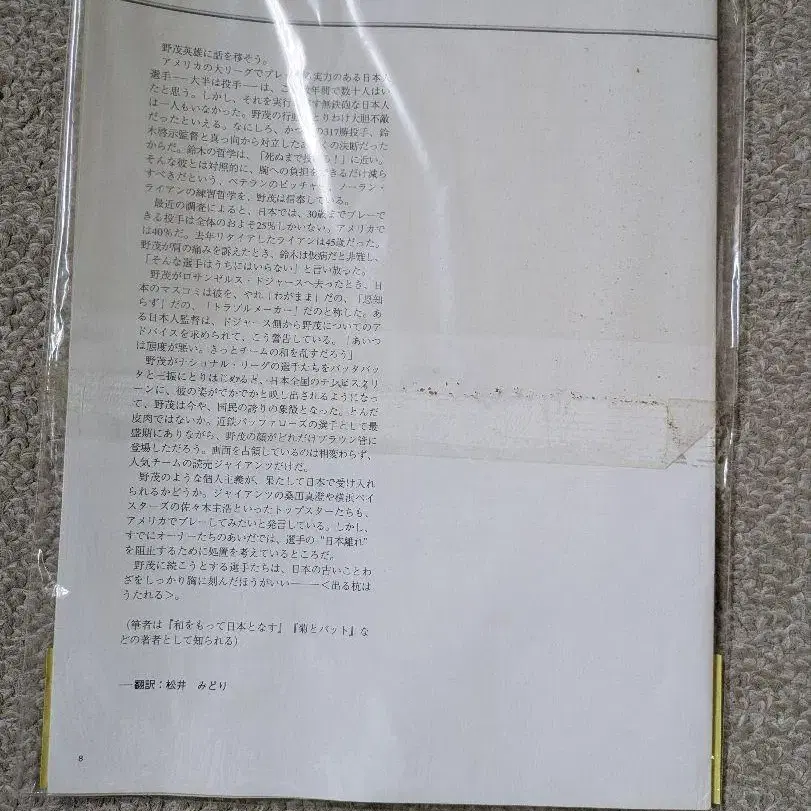 野茂英雄に話を移そう。
アメリカの大リーグでプレー 実力のある日本人
選手——大半は投手——は、こ 数年間で数十人はい
たと思う。しかし、それを実行 す無鉄砲な日本人
は一人もいなかった。野茂の行動 とりわけ大胆不敵
だったといえる。なにしろ、かつ の317勝投手、鈴
木啓示監督と真っ向から対立した くの決断だった
からだ。鈴木の哲学は、「死ぬまで投 ろ！」に近い。
そんな彼とは対照的に、腕への負担を きるだけ減ら
すべきだという、ベテランのピッチャー、ノーラン・
ライアンの練習哲学を、野茂は信奉している。
最近の調査によると、日本では、30歳までプレーで
きる投手は全体のおよそ25％しかいない。アメリカで
は40％だ。去年リタイアしたライアンは45歳だった。
野茂が肩の痛みを訴えたとき、鈴木は仮病だと非難し、
「そんな選手はうちにはいらない」と言い放った。
野茂がロサンゼルス・ドジャースへ去ったとき、日
本のマスコミは彼を、やれ「わがまま」だの、「恩知
らず」だの、「トラブルメーカー」だのと称した。あ
る日本人監督は、ドジャース側から野茂についてのア
ドバイスを求められて、こう警告している。「あいつ
は態度が悪い。きっとチームの和を乱すだろう」
野茂がナショナル・リーグの選手たちをバッタバッ
タと三振にとりはじめると、日本全国のテレビスクリ
ーンに、彼の姿がでかでかと映し出されるようになっ
て、野茂は今や、国民の誇りの象徴となった。とんだ
皮肉ではないか。近鉄バッファローズの選手として最
盛期にありながら、野茂の顔がどれだけブラウン管に
登場しただろう。画面を占領しているのは相変わらず、
人気チームの読売ジャイアンツだけだ。
野茂のような個人主義が、果たして日本で受け入れ
られるかどうか。ジャイアンツの桑田真澄や横浜ベイ
スターズの佐々木主浩といったトップスターたちも、
アメリカでプレーしてみたいと発言している。しかし、
すでにオーナーたちのあいだでは、選手の"日本離れ"
を阻止するために処置を考えているところだ。
野茂に続こうとする選手たちは、日本の古いことわ
ざをしっかり胸に刻んだほうがいい——＜出る杭は
うたれる＞。
（筆者は『和をもって日本となす』『菊とバット』な
どの著者として知られる）
—翻訳：松井 みどり
8